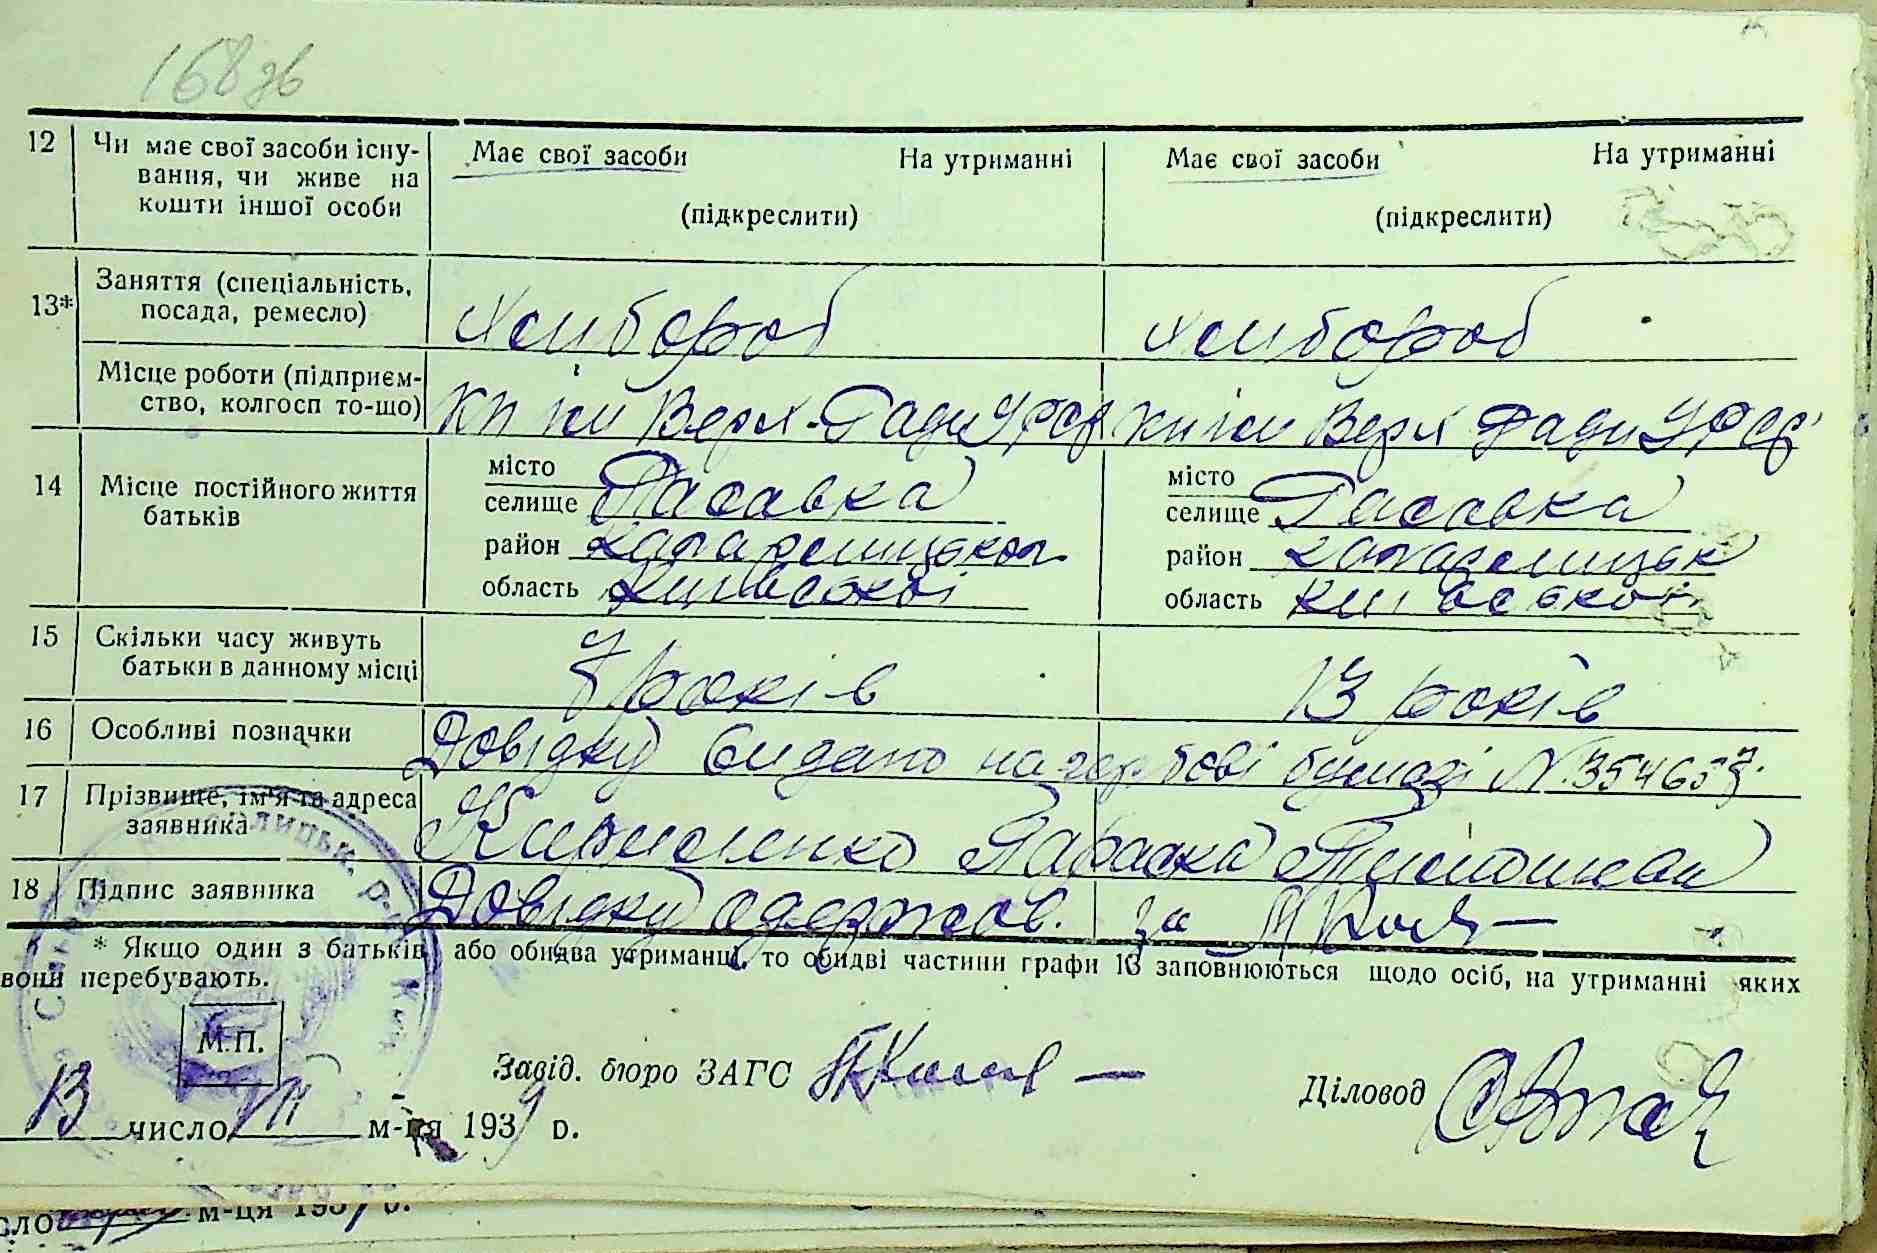 168 зв
12 Чи має свої засоби існу- Має свої засоби На утриманні Має свої засоби На утриманні
вання, чи живе на
кошти іншої особи (підкреслити) (підкреслити)
13* Заняття (спеціальність, посада, ремесло) Хлибороб Хлибороб
Місце роботи (підприєм-
ство, колгосп то-що) Верх. Ради УРСР Верх Ради УРСР
14 Місце постійного життя батьків
місто місто
селище Расавка селище Расавка
район Кагарлицької район Кагарлицьк
область Київської область Київської
15 Скільки часу живуть
батьки в данному місці 7 років 13 років
16 Особливі позначки Довідку видано на гербові бумазі №354657.
17 Прізвище, ім'я та адреса
заявника Кириленко Параска Тимошівн
18 Підпис заявника Довідку одержав. за
* Якщо один з батьків або обидва утриманці, то обидві частини графи 13 заповнюються щодо осіб, на утриманні яких
вони перебувають.
М.П.
Завід. бюро ЗАГС
Діловод
13 число VII м-ця 1939 р.
сло м-ця 1939 р.